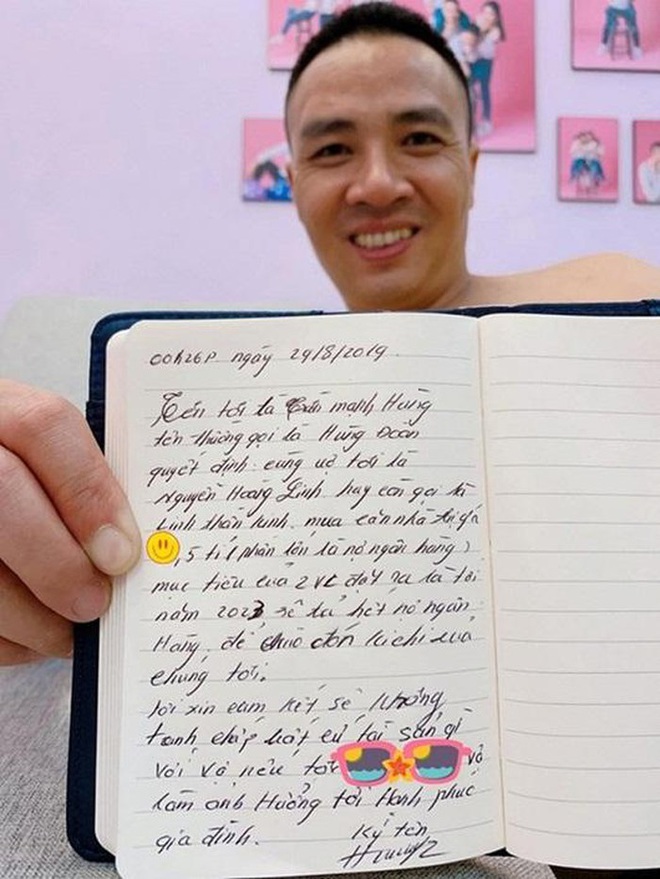 00h26p ngày 29/8/2019.
Tên tôi là Trần mạnh Hùng
tên thường gọi là Hùng Đoàn
quyết định cùng vợ tôi là
Nguyễn Hoàng Linh hay còn gọi là
Linh thần kinh. mua căn nhà trị giá
,5 tỉ ( phần lớn là nợ ngân hàng )
mục tiêu của 2 VC đặt ra là tới
năm 2023 sẽ trả hết nợ ngân
Hàng. để chào đón kichi của
chúng tôi.
tôi xin cam kết sẽ không
tranh chấp bất cứ tài sản gì
Với Vợ nếu tôi vỡ
làm ảnh Hưởng tới Hạnh phúc
gia đình. Ký tên